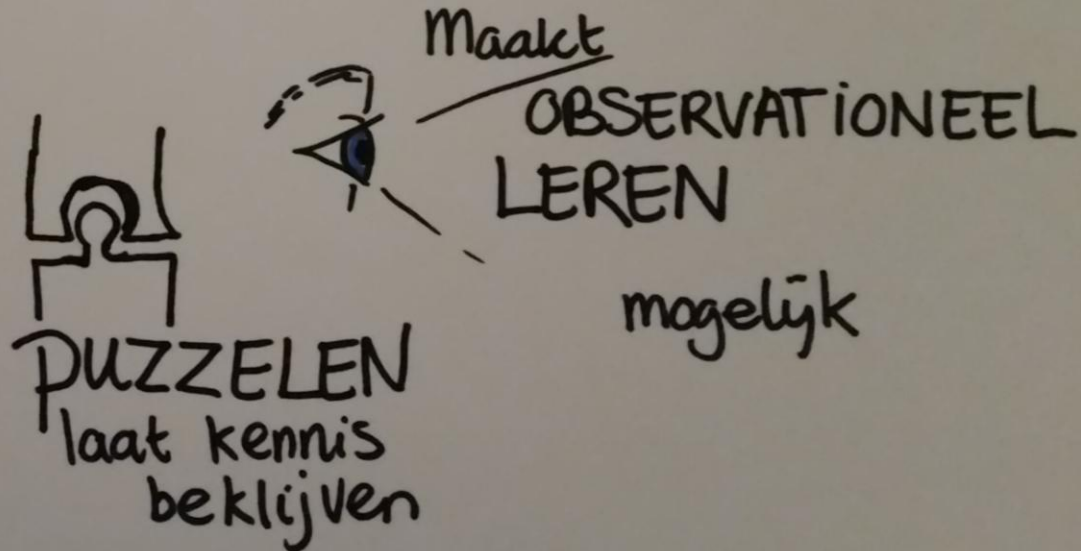 Maakt
OBSERVATIONEEL
LEREN
mogelijk
PUZZELEN
laat kennis
beklijven